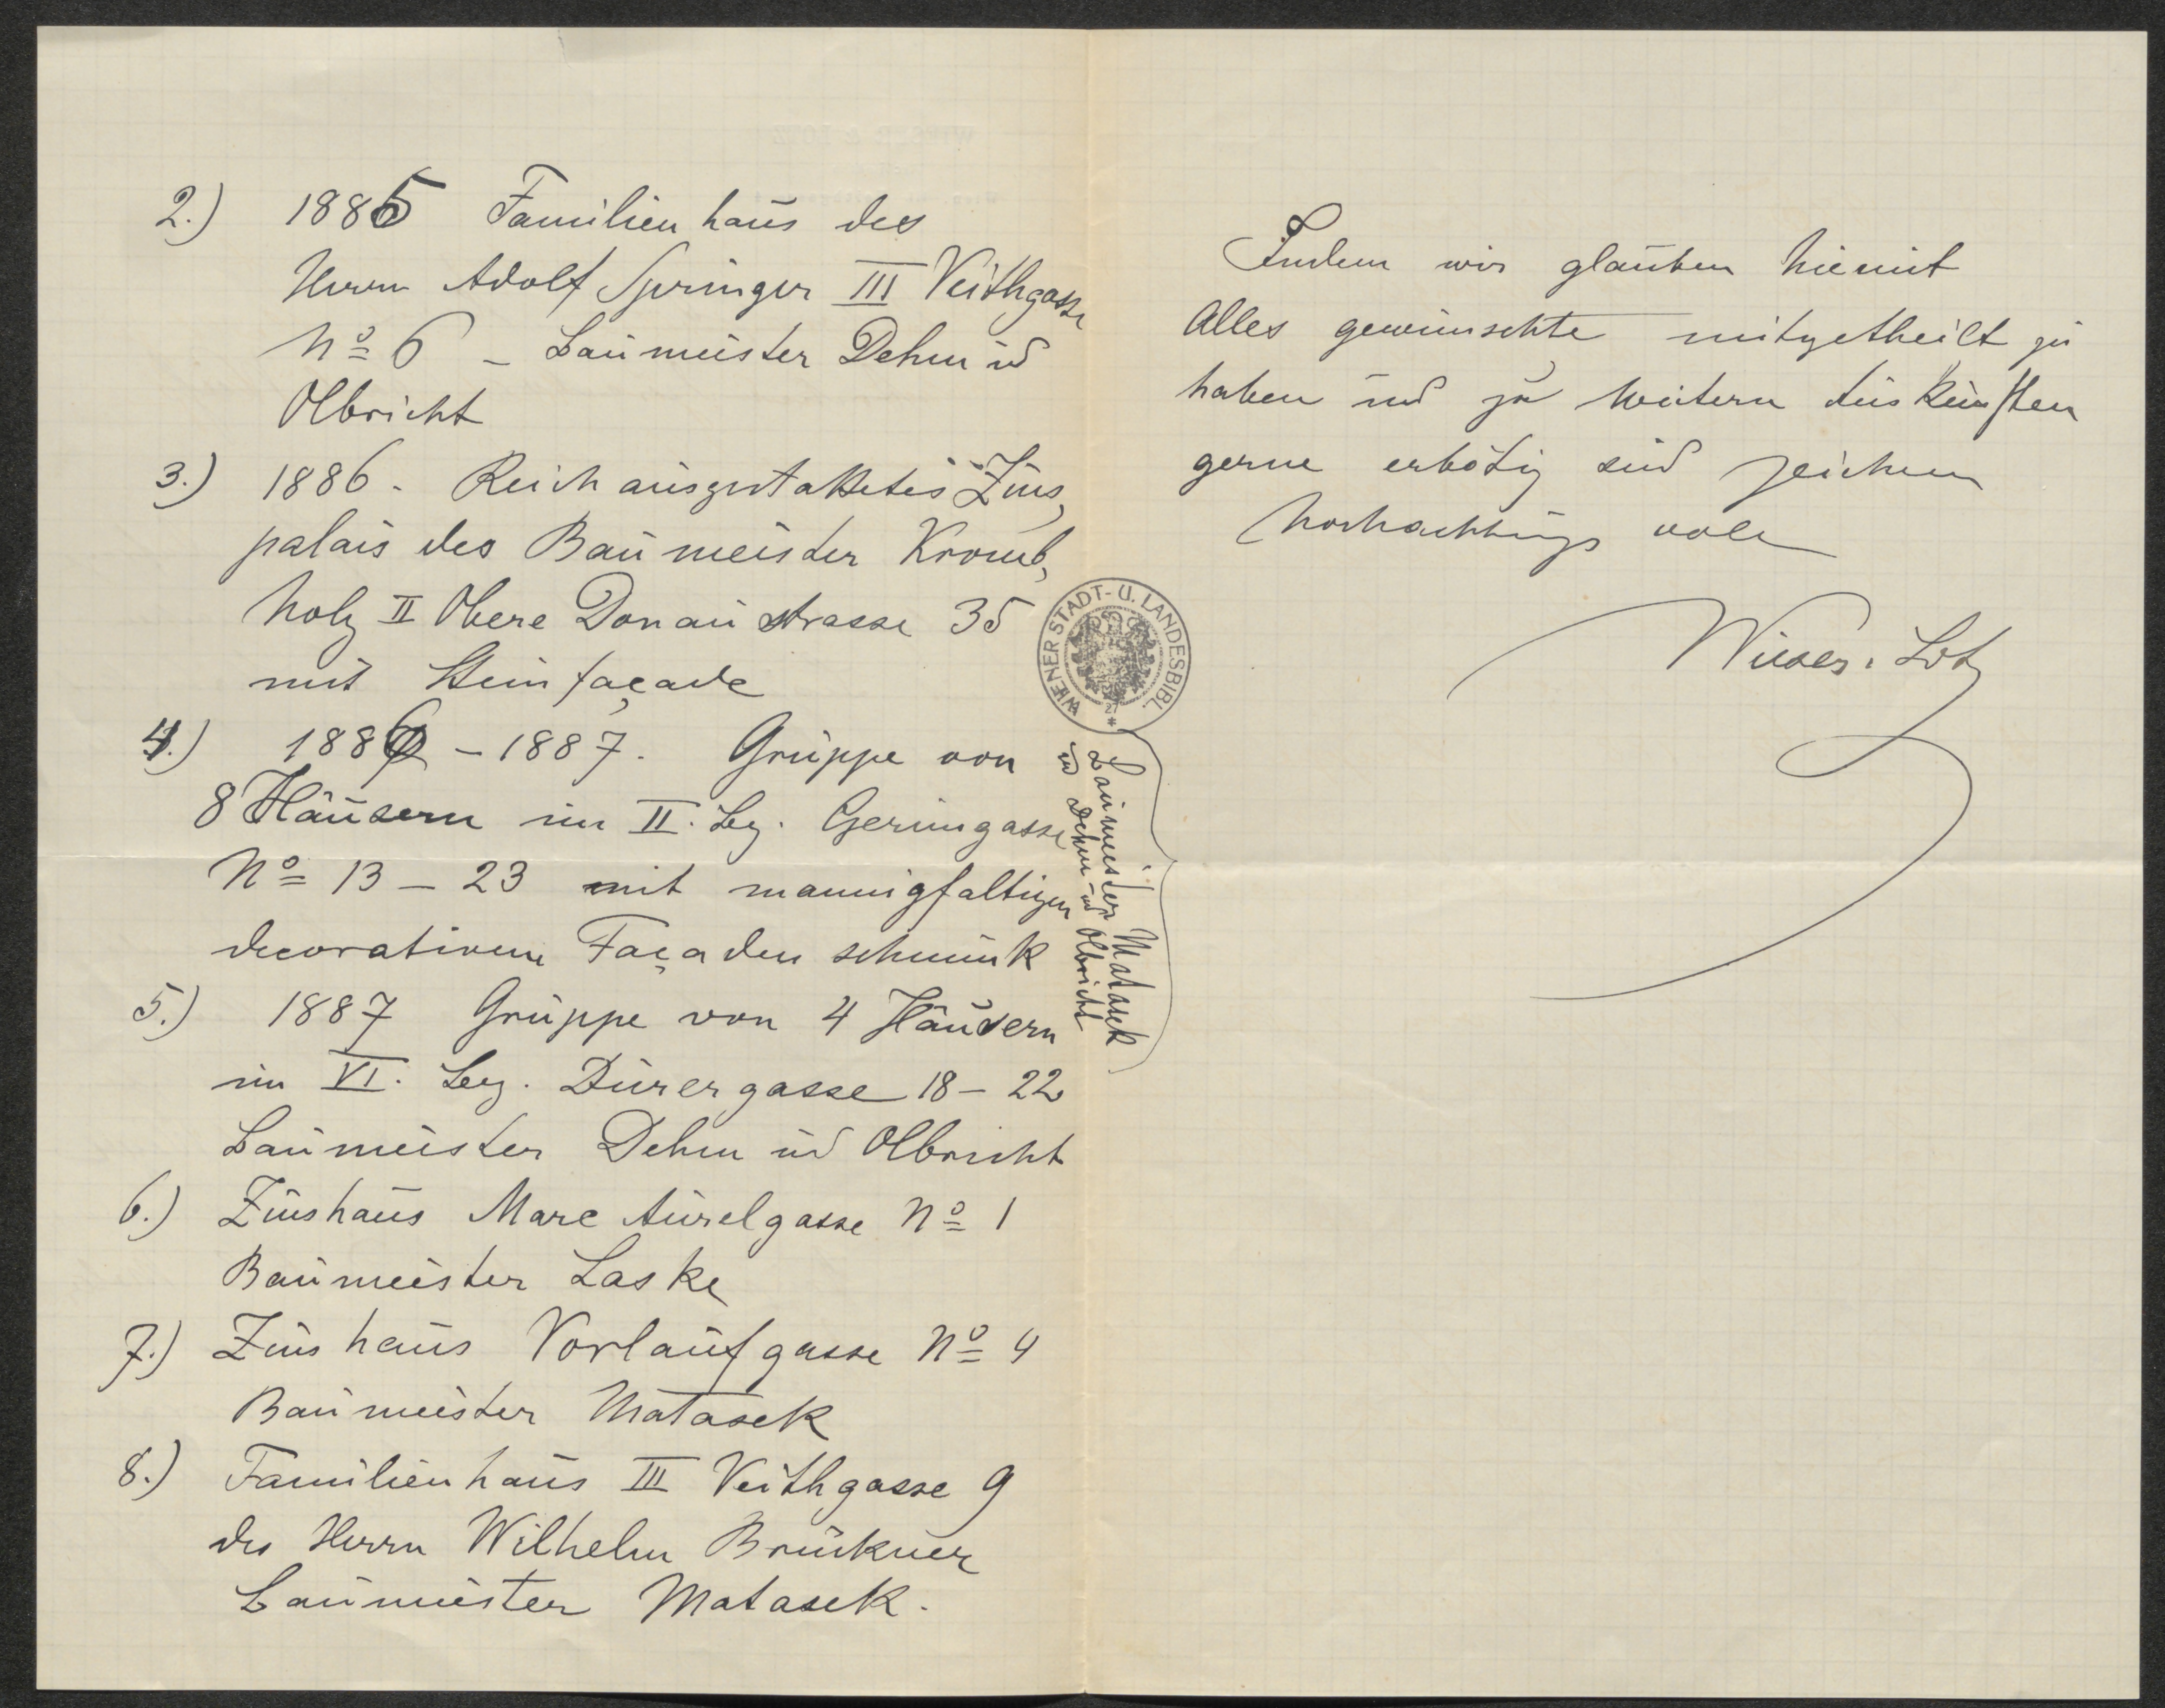 2.) 1885 Familienhaus des
Herrn Adolf Springer III Veithgasse
No 6 – Baumeister Dehm und
Olbricht
3.) 1886. Reich ausgestattetes Zins,
palais des Baumeister Kromb,
holz II Obere Donaustrasse 35
mit Steinfaçade
4.) 1886 – 1887. Gruppe von
8 Häusern im II. Bez. Gerningasse
No 13 – 23 mit mannigfaltigen
decorativem Façadenschmuck
Baumeister Matasek
und Dehm und Olbricht
5.) 1887 Gruppe von 4 Häusern
im VI. Bez. Dürergasse 18 – 22
Baumeister Dehm und Olbricht
6.) Zinshaus Marc Aurelgasse No 1
Baumeister Laske
7.) Zinshaus Vorlaufgasse No 4
Baumeister Matasek
8.) Familienhaus III Veithgasse 9
des Herrn Wilhelm Brückner
Baumeister Matasek.
WIENER STADT- U. LANDESBIBL.
Indem wir glauben hiemit
Alles gewünschte mitgetheilt zu
haben und zu weitern Auskünften
gerne erbötig sind zeichnen
hochachtungsvoll
Wieser & Lotz